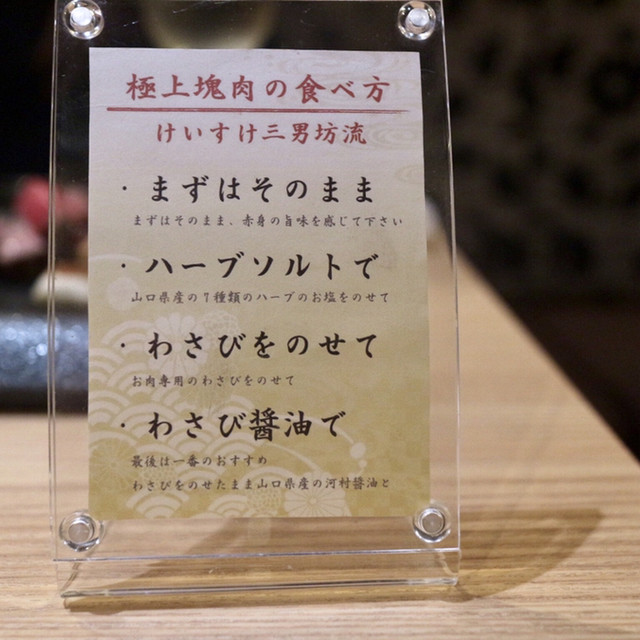 極上塊肉の食べ方
けいすけ三男坊流
・まずはそのまま
まずはそのまま、赤身の旨味を感じて下さい
・ハーブソルトで
山口県産の7種類のハーブのお塩をのせて
・わさびをのせて
お肉専用のわさびをのせて
・わさび醤油で
最後は一番のおすすめ
わさびをのせたまま山口県産の河村醤油と